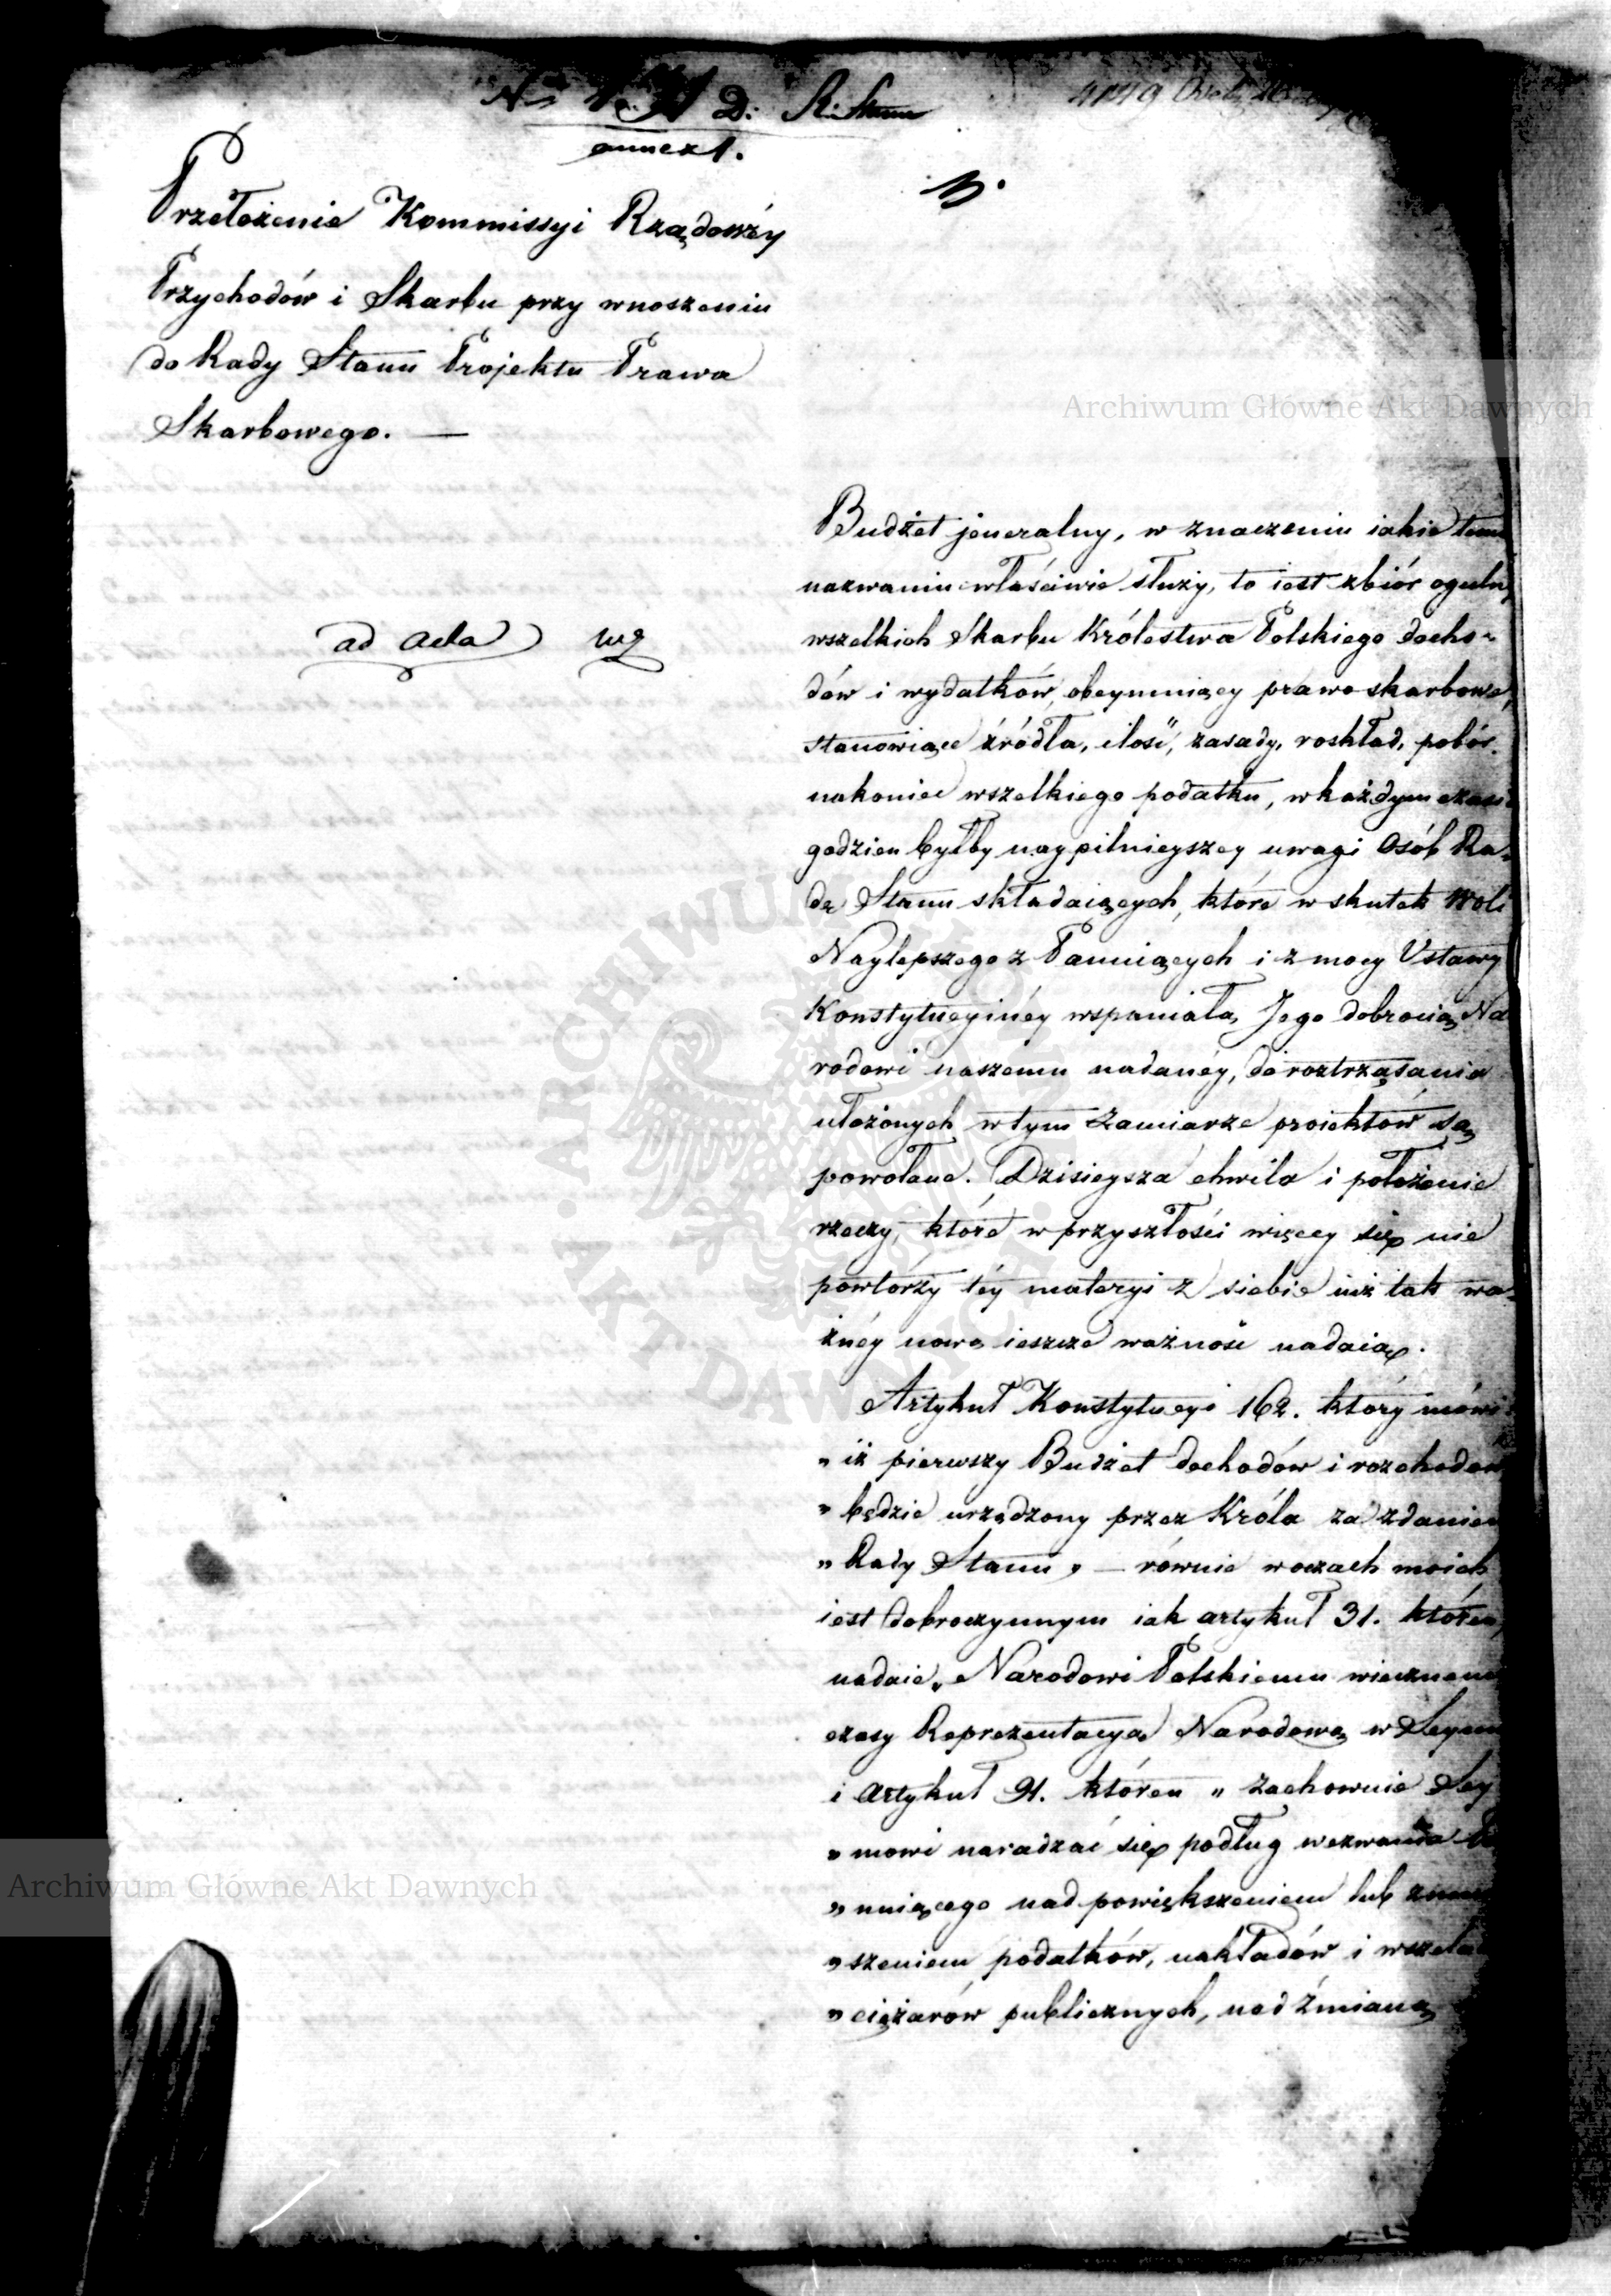 D: R. Stanu
annex 1.
Przełożenie Kommissyi Rządowéy
Przychodów i Skarbu przy wnoszeniu
do Rady Stanu Projektu Prawa
Skarbowego. —
ad acta
Budżet jeneralny, w znaczeniu iakie temu
nazwaniu właściwie służy, to iest zbiór ogulny
wszelkich Skarbu Królestwa Polskiego docho-
dów i wydatków, obeymuiący prawo skarbowe,
stanowiące źródła, ilość, zasady, roskład, pobór
nakoniec wszelkiego podatku, w każdym czasie
godzien byłby naypilnieyszey uwagi Osób Ra-
dę Stanu składaiących, które w skutek Woli
Naylepszego z Panuiących i z mocy Ustawy
Konstytucyinéy wspaniałą Jego dobrocią Na
rodowi naszemu nadanéy, do roztrząsania
ułożonych w tym zamiarze proiektów są
powołane. Dzisieysza chwila i położenie
rzeczy, które w przyszłości więcey się nie
powtórzy téy materyi z siebie iuż tak wa-
żnéy nową ieszcze ważność nadaią.
Artykuł Konstytucyi 162. który mówi
„ iż pierwszy Budżet dochodów i rozchodów
„ będzie urządzony przez Króla za zdaniem
„ Rady Stanu „ — równie w oczach moich
iest dobroczynnym iak artykuł 31. któren
nadaie „ Narodowi Polskiemu wieczneme
czasy Reprezentacyą Narodową w Seymie
i artykuł 91. któren „ zachownie Sey
„ mowi naradzać się podług wezwania Pa
„ nuiącego nad powiększeniem lub zmniey
„ szeniem podatków, nakładów i wszelkich
„ ciężarów publicznych, nad zmianą
Archiwum Główne Akt Dawnych
Archiwum Główne Akt Dawnych
ARCHIWUM GŁÓWNE AKT DAWNYCH